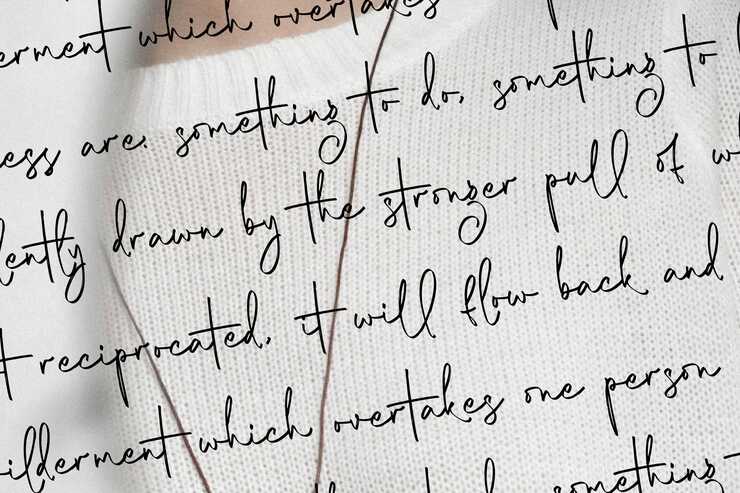 erment which overtakes
ess are. something to do, something to
ently drawn by the stronger pull of
t reciprocated, it will flow back and
ilderment which overtakes one person
something